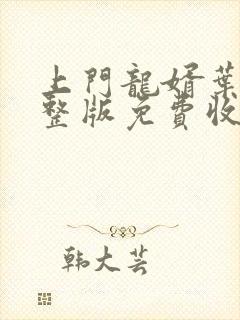 上門龍婿葉
整版免費收
韩大芸